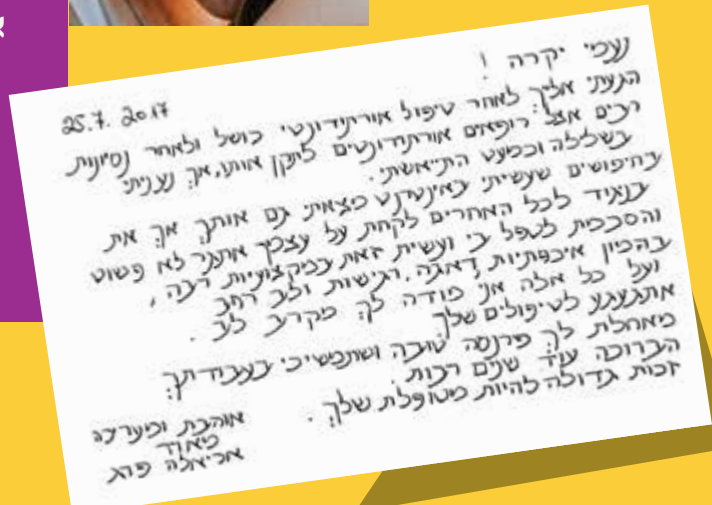 נעמי יקרה !
25.7.2017
הגעתי אליך לאחר טיפול אורתודונטי כושל ולאחר נסיונות
רבים אצל רופאים אורתודונטים לתקן אותו, אך נעניתי
בשלילה וכמעט התייאשתי.
בחיפושים שעשיתי באינטרנט מצאתי גם אותך אך את
בניגוד לכל האחרים לקחת על עצמך אתגר לא פשוט
והסכמת לטפל בי ועשית זאת במקצועיות רבה,
בהמון איכפתיות, דאגה, רגישות ולב רחב
ועל כל אלה אני מודה לך מקרב לב.
אתגעגע לטיפולים שלך
מאחלת לך פרנסה טובה ושתמשיכי בעבודתך
הברוכה עוד שנים רבות.
זכות גדולה להיות מטופלת שלך.
אוהבת ומעריכה
מאוד
אריאלה